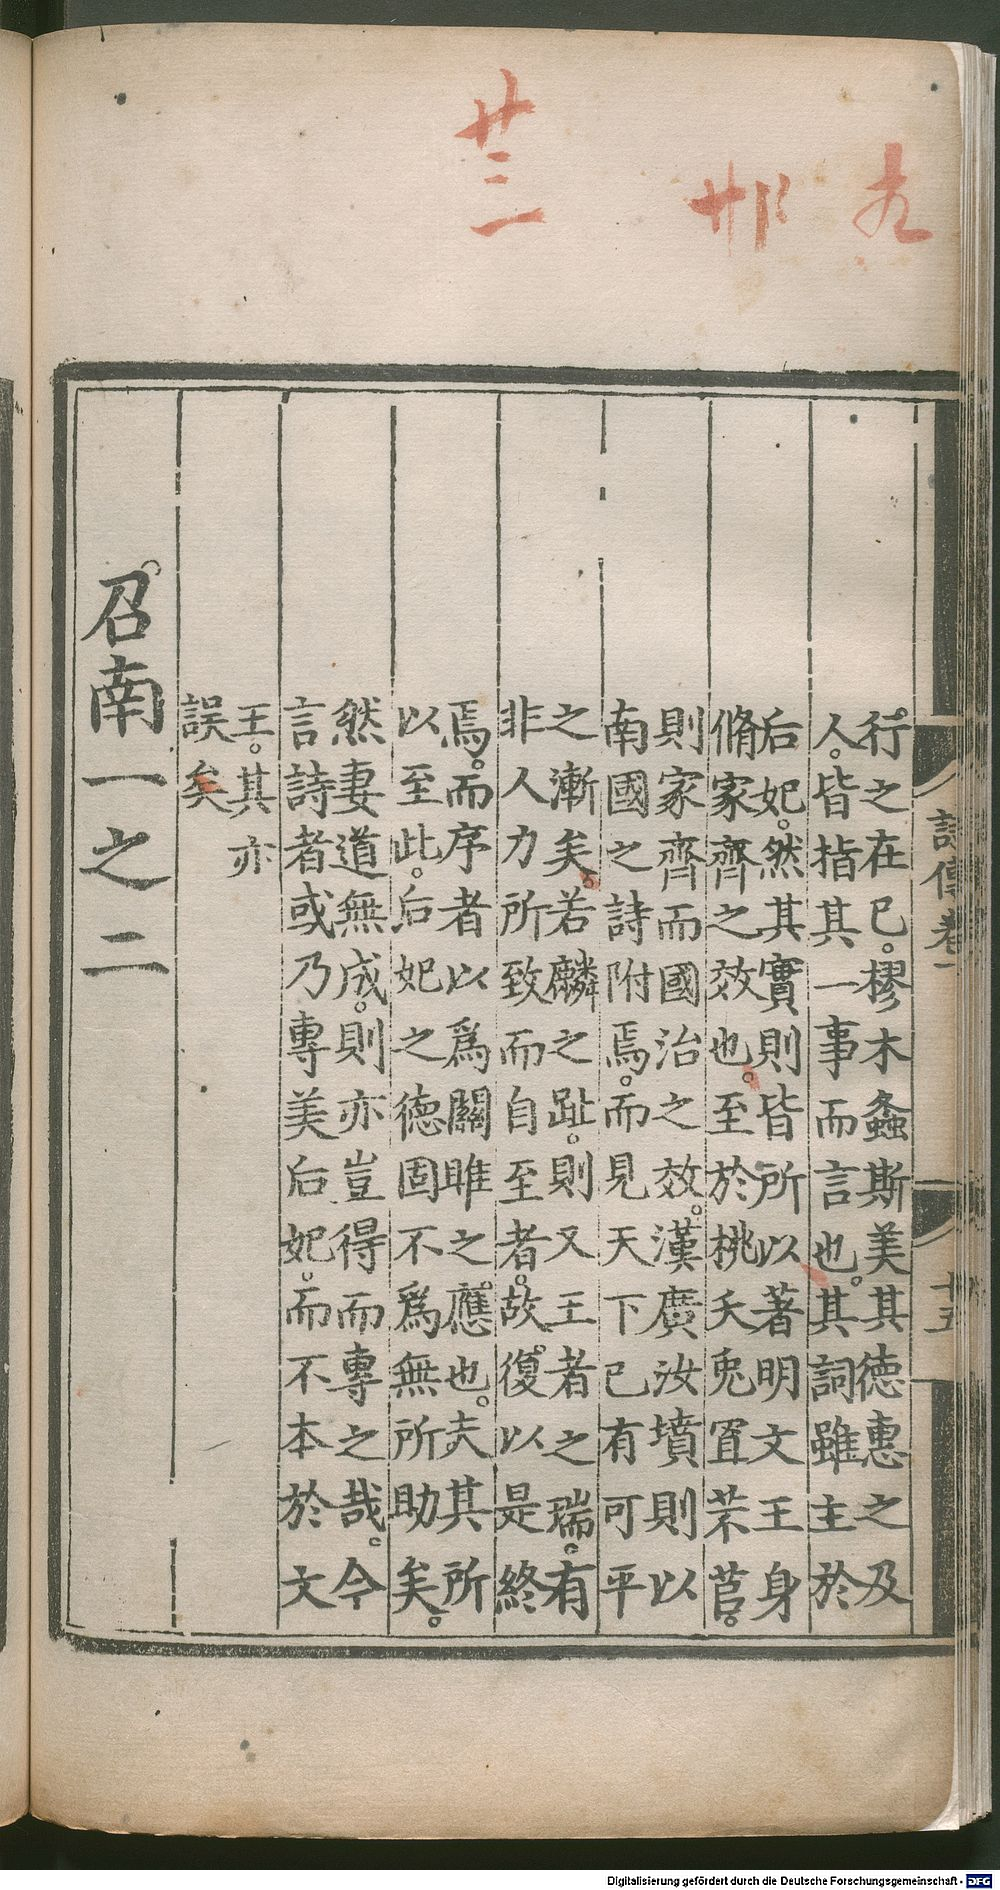 廿三
行之在己。樛木螽斯美其德惠之及
人。皆指其一事而言也。其詞雖主於
后妃。然其實則皆所以著明文王身
脩家齊之效也。至於桃夭兎罝芣苢。
則家齊而國治之效。漢廣汝墳則以
南國之詩附焉。而見天下已有可平
之漸矣。若麟之趾。則又王者之瑞。有
非人力所致而自至者。故復以是終
焉。而序者以為關雎之應也。夫其所
以至此。后妃之德固不為無所助矣。
然妻道無成。則亦豈得而專之哉。今
言詩者或乃專美后妃。而不本於文
王。其亦
誤矣
召南一之二
詩傳卷一
十五
Digitalisierung gefördert durch die Deutsche Forschungsgemeinschaft - DFG